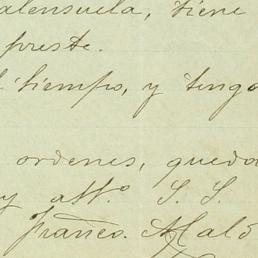 alenzuela, tiene
preste.
l tiempo, y tengo
ordenes, queda
y atto. S. S.
Franco. Mald